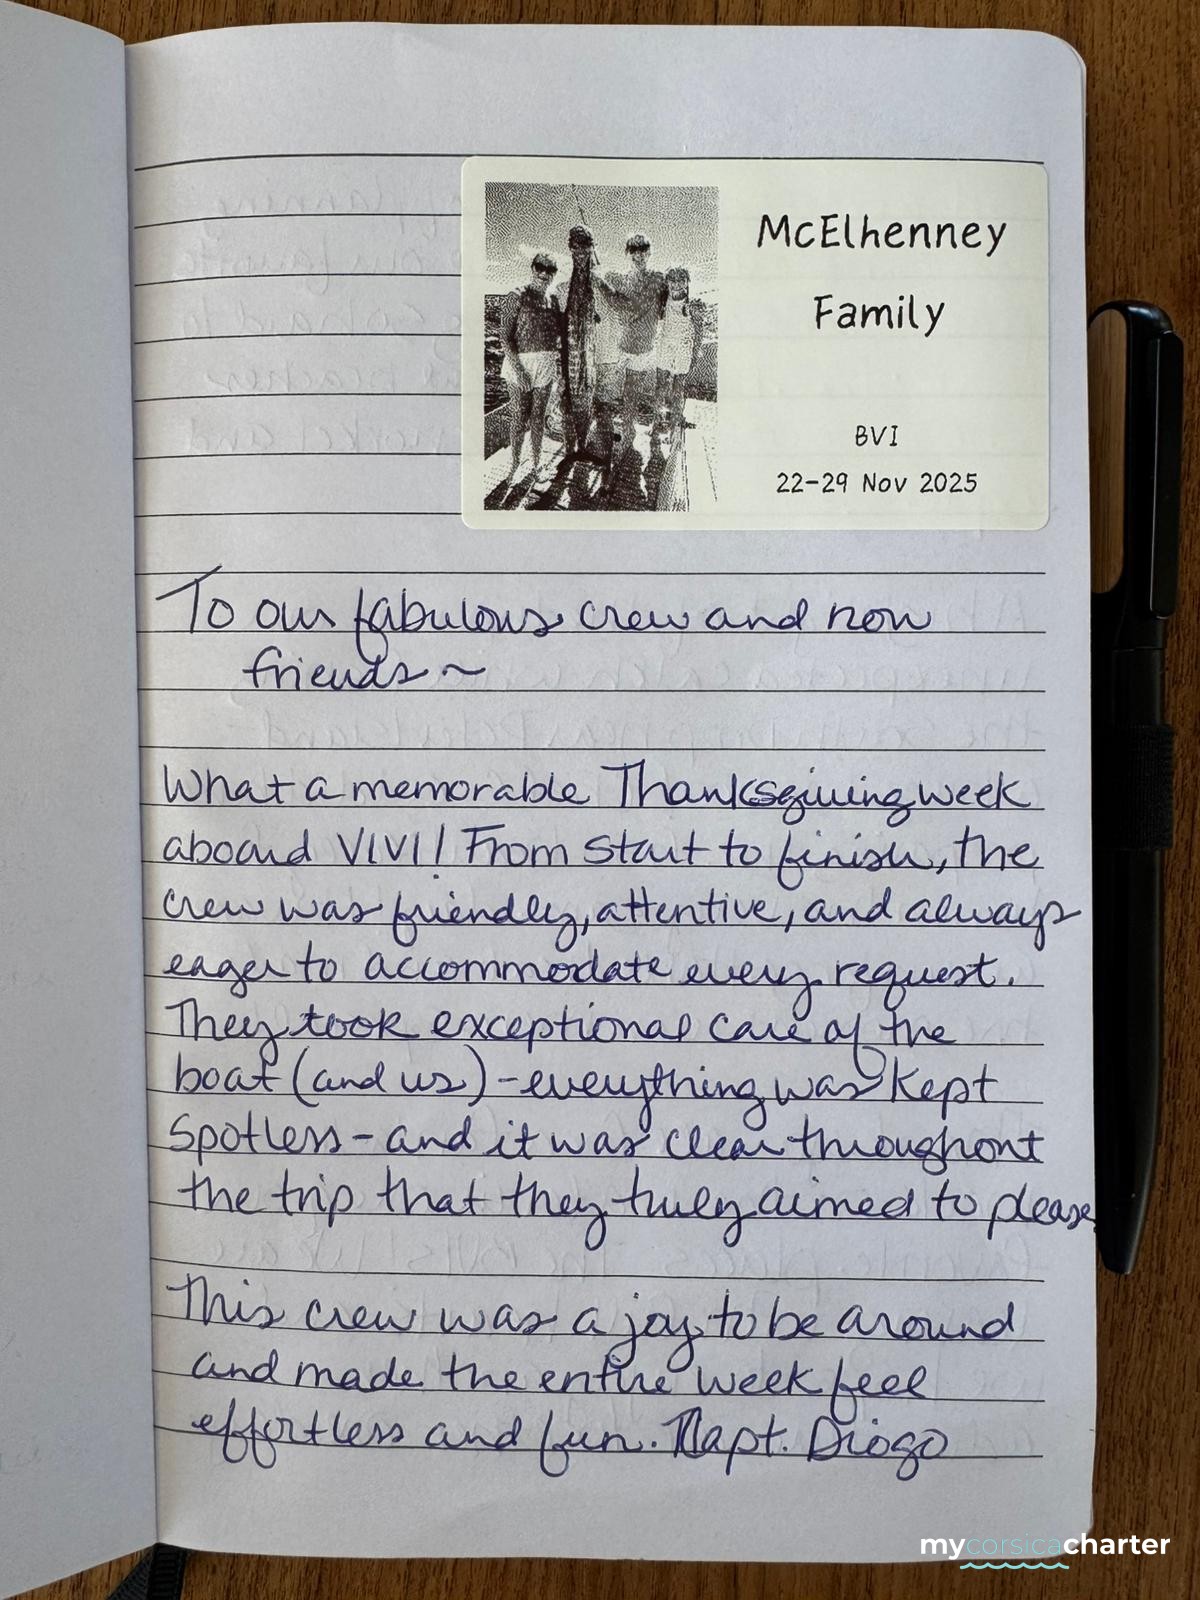 McElhenney
Family
BVI
22-29 Nov 2025
To our fabulous crew and now
friends ~
What a memorable Thanksgiving week
aboard VIVI! From start to finish, the
crew was friendly, attentive, and always
eager to accommodate every request.
They took exceptional care of the
boat (and us) - everything was kept
spotless - and it was clear throughout
the trip that they truly aimed to please.
This crew was a joy to be around
and made the entire week feel
effortless and fun. Capt. Diogo
mycorsicacharter